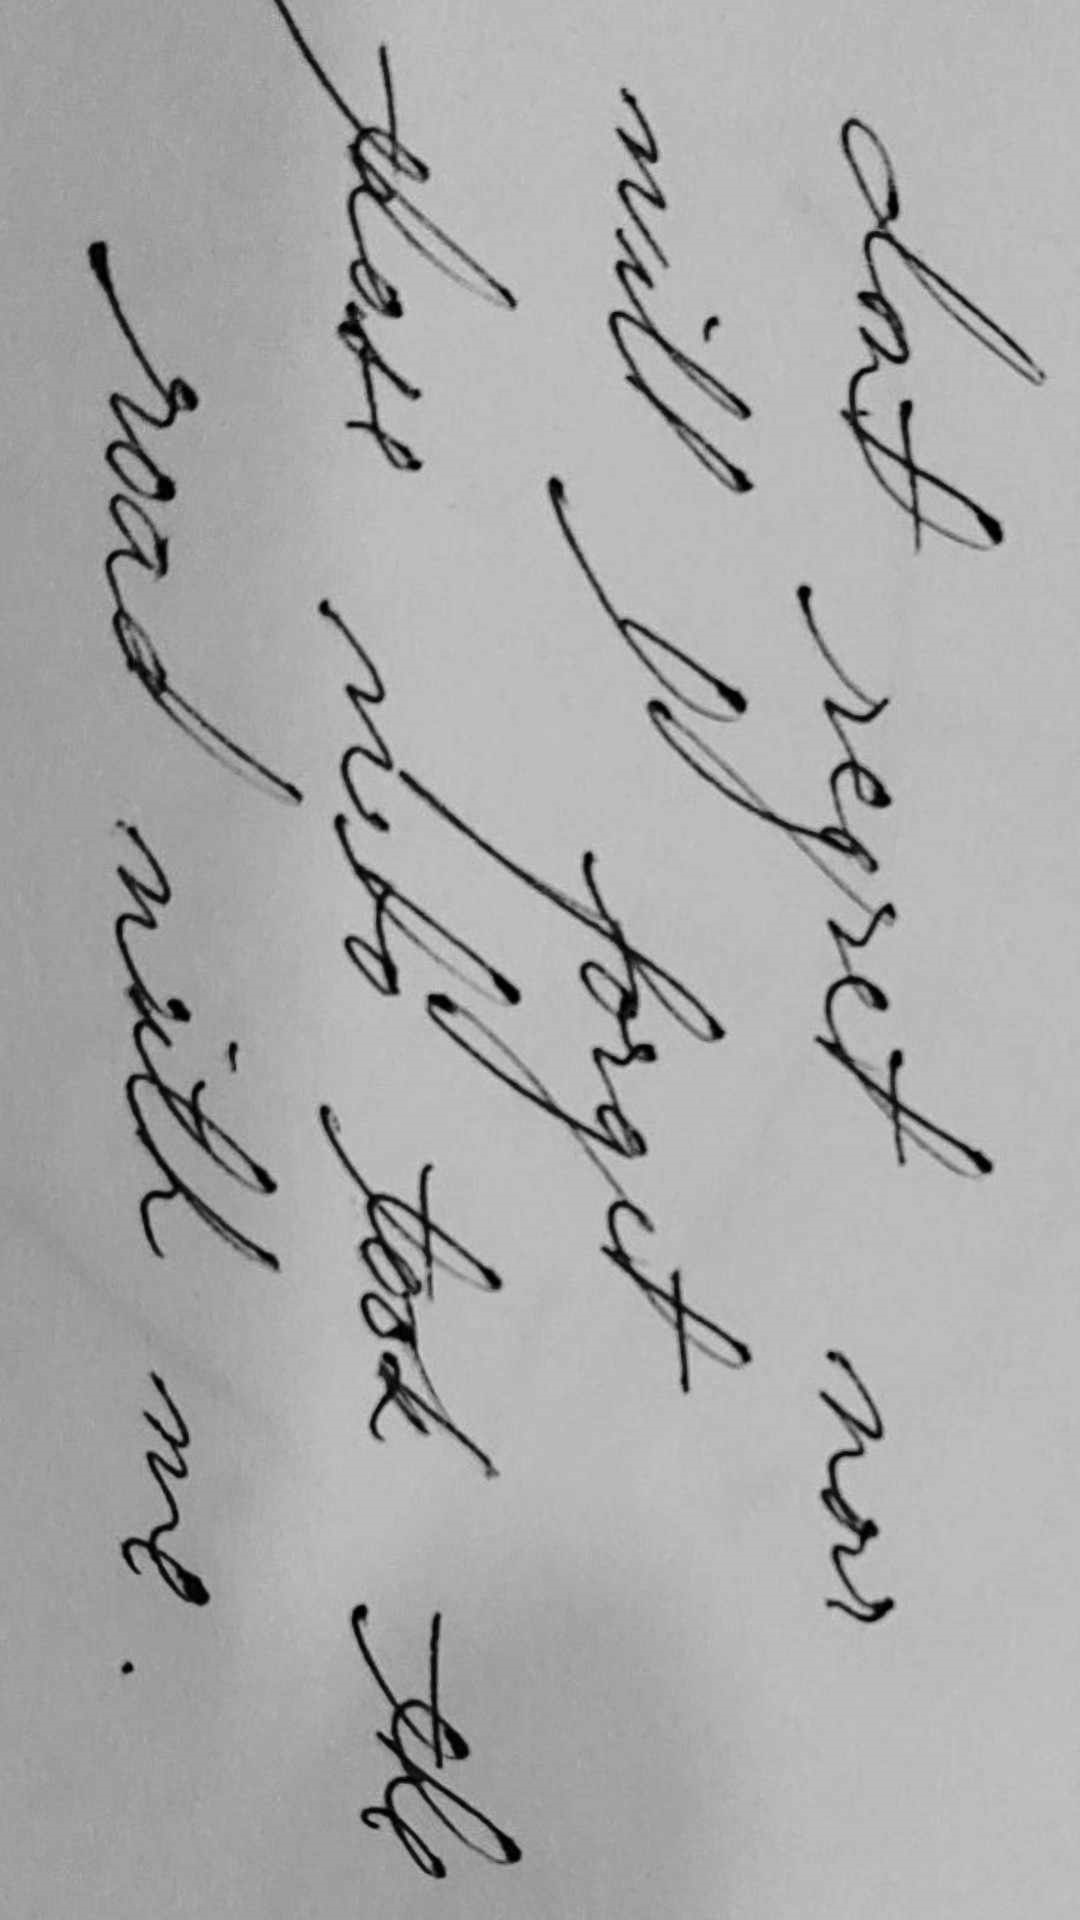 dont regret nor
will I forget
those who took the
road with me.